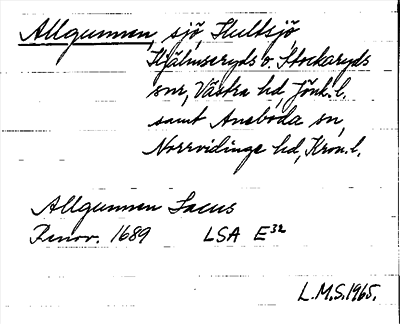 Allgunnen, sjö, Hultsjö,
Hjälmseryds o. Stockaryds
snr, Västra hd, Jönk. l.
samt Aneboda sn,
Norrvidinge hd, Kron. l.
Allgunnen Lacus
Renov. 1689 LSA E³²
L.M.S. 1965.